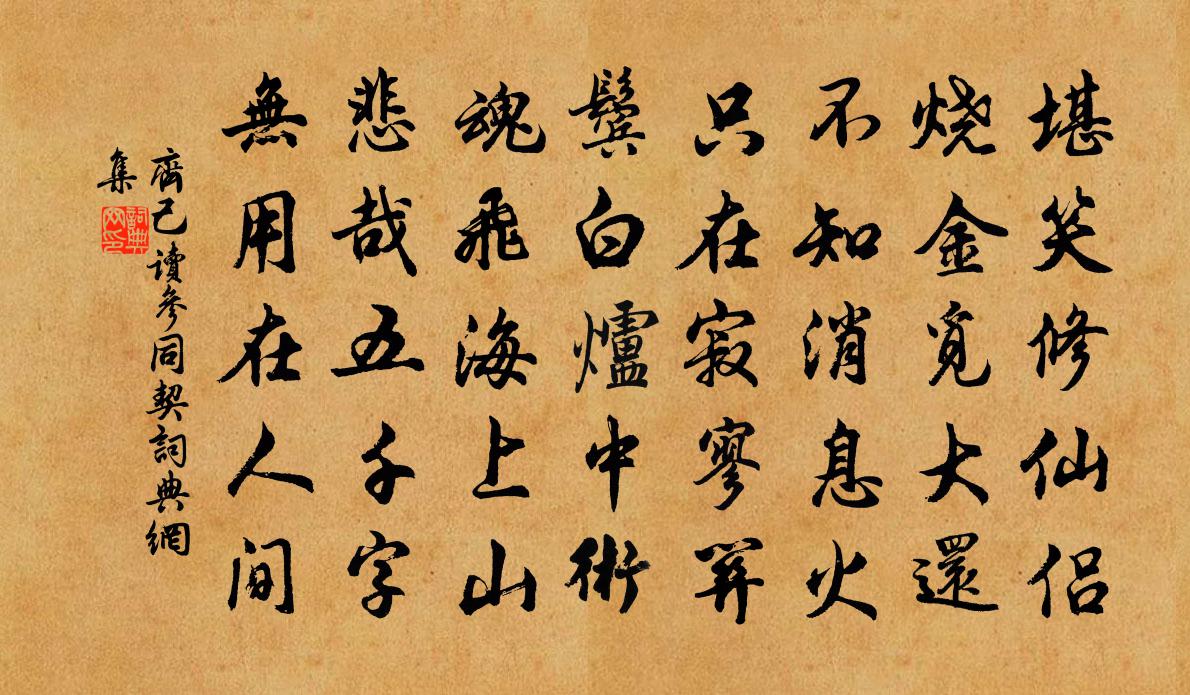 堪笑修仙侣
烧金覓大還
不知消息火
只在寂寥關
鬓白爐中術
魂飛海上山
悲哉五千字
無用在人间
齊己讀參同契詞典網
集
詞典
网印